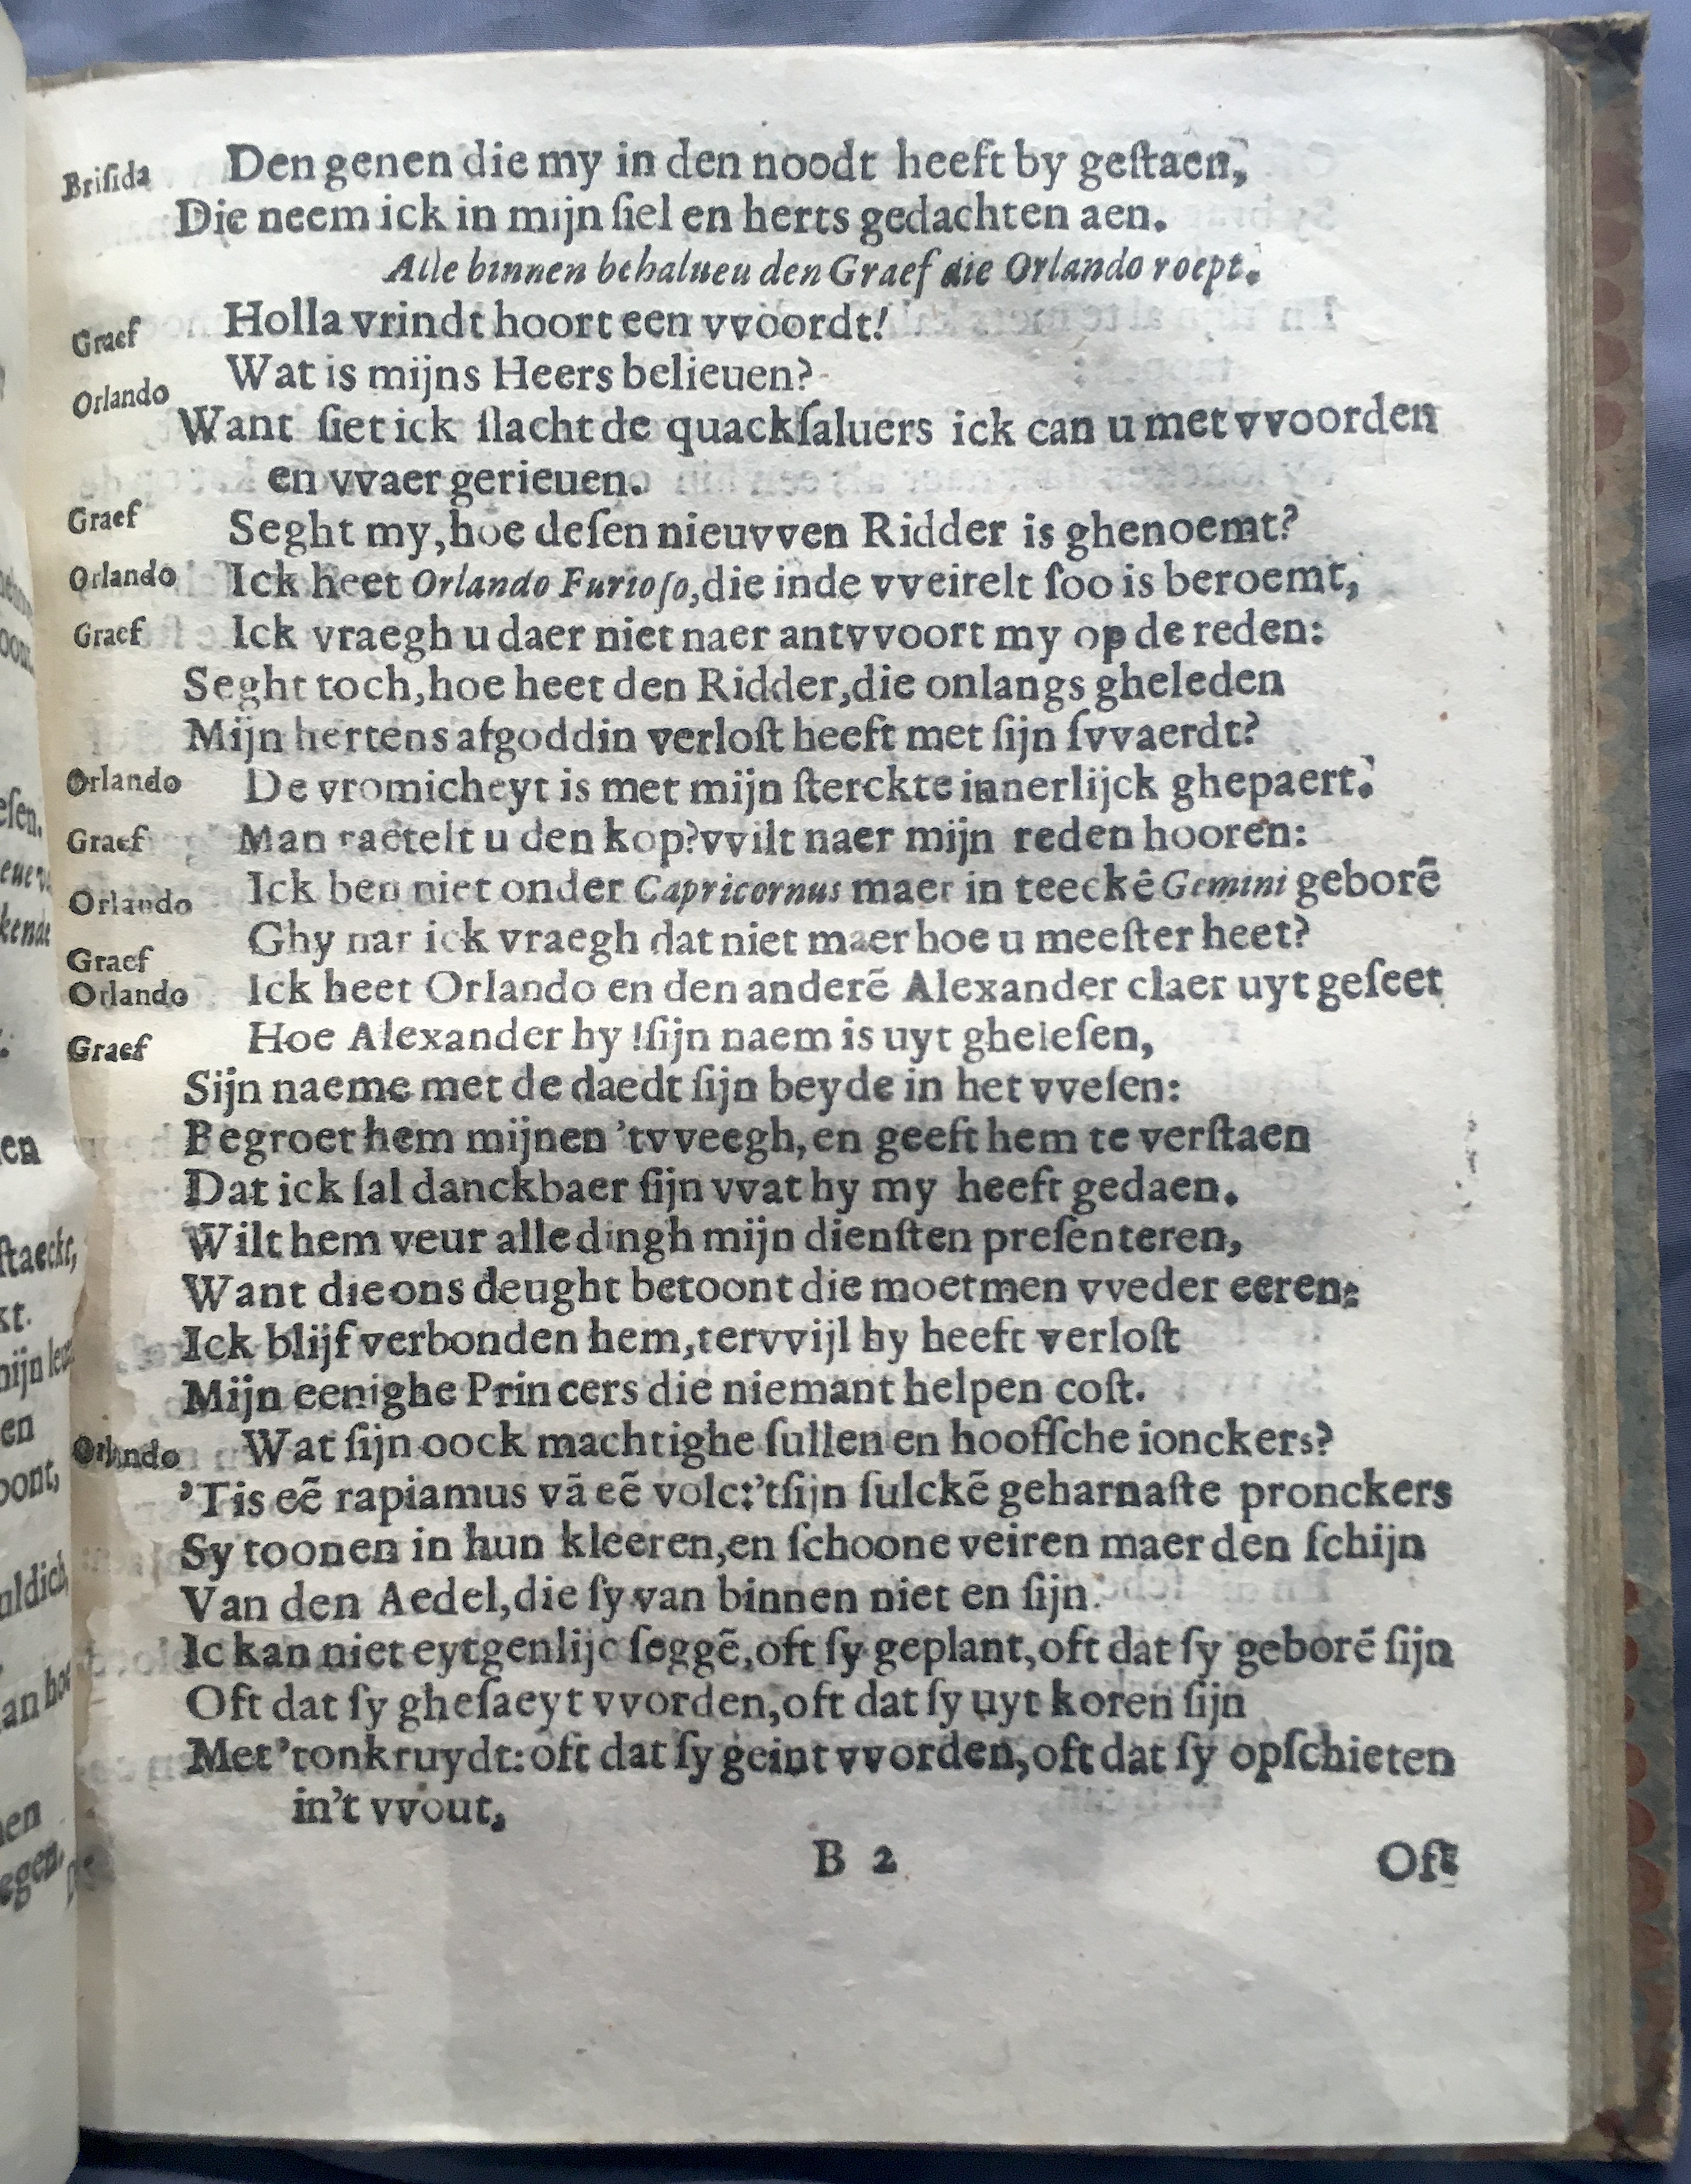 Briſida Den genen die my in den noodt heeft by geſtaen,
Die neem ick in mijn ſiel en herts gedachten aen.
Alle binnen behalueu den Graef die Orlando roept.
Graef Holla vrindt hoort een vvoordt!
Orlando Wat is mijns Heers belieuen?
Want ſiet ick ſlacht de quackſaluers ick can u met vvoorden
en vvaer gerieuen.
Graef Seght my, hoe deſen nieuvven Ridder is ghenoemt?
Orlando Ick heet Orlando Furioſo, die inde vveirelt ſoo is beroemt,
Graef Ick vraegh u daer niet naer antvvoort my op de reden:
Seght toch, hoe heet den Ridder, die onlangs gheleden
Mijn hertens afgoddin verloſt heeft met ſijn ſvvaerdt?
Orlando De vromicheyt is met mijn ſterckte innerlijck ghepaert.
Graef Man raetelt u den kop? vvilt naer mijn reden hooren:
Orlando Ick ben niet onder Capricornus maer in teeckē Gemini geborē
Graef Ghy nar ick vraegh dat niet maer hoe u meeſter heet?
Orlando Ick heet Orlando en den anderē Alexander claer uyt geſeet
Graef Hoe Alexander hy! ſijn naem is uyt gheleſen,
Sijn naeme met de daedt ſijn beyde in het vveſen:
Begroet hem mijnen 'tvveegh, en geeft hem te verſtaen
Dat ick ſal danckbaer ſijn vvat hy my heeft gedaen.
Wilt hem veur alle dingh mijn dienſten preſenteren,
Want die ons deught betoont die moetmen vveder eeren:
Ick blijf verbonden hem, tervvijl hy heeft verloſt
Mijn eenighe Princers die niemant helpen coſt.
Orlando Wat ſijn oock machtighe ſullen en hooffſche ionckers?
'Tis eē rapiamus vā eē volc: 'tſijn ſulckē geharnaſte pronckers
Sy toonen in hun kleeren, en ſchoone veiren maer den ſchijn
Van den Aedel, die ſy van binnen niet en ſijn.
Ic kan niet eytgenlijc ſeggē, oft ſy geplant, oft dat ſy geborē ſijn
Oft dat ſy gheſaeyt vvorden, oft dat ſy uyt koren ſijn
Met 'tonkruydt: oft dat ſy geint vvorden, oft dat ſy opſchieten
in't vvout,
B 2 Oft